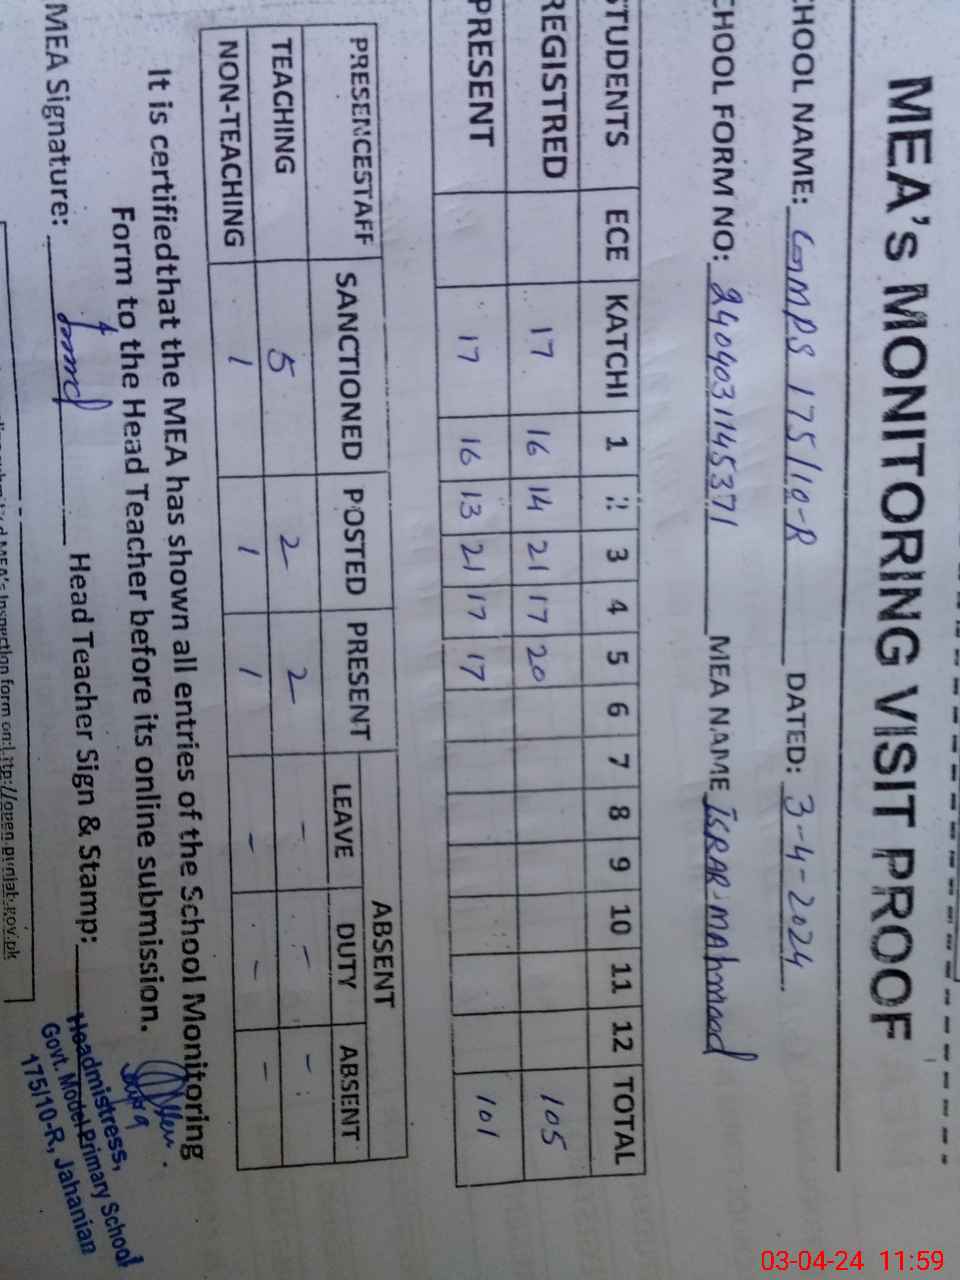 MEA's MONITORING VISIT PROOF
CHOOL NAME: GMPS 175/10-R DATED: 3-4-2024
CHOOL FORM NO: 2404031145371 MEA NAME ISRAR MAhmood
STUDENTS ECE KATCHI 1 2 3 4 5 6 7 8 9 10 11 12 TOTAL
REGISTRED 17 16 14 21 17 20 105
PRESENT 17 16 13 21 17 17 101
PRESENCESTAFF SANCTIONED POSTED PRESENT ABSENT
LEAVE DUTY ABSENT
TEACHING 5 2 2 - - -
NON-TEACHING 1 1 1 - - -
It is certifiedthat the MEA has shown all entries of the School Monitoring
Form to the Head Teacher before its online submission.
MEA Signature: Head Teacher Sign & Stamp:
Headmistress,
Govt. Model Primary School
175/10-R, Jahanian
MEA's Inspection form on: http://open.punjab.gov.pk
03-04-24 11:59